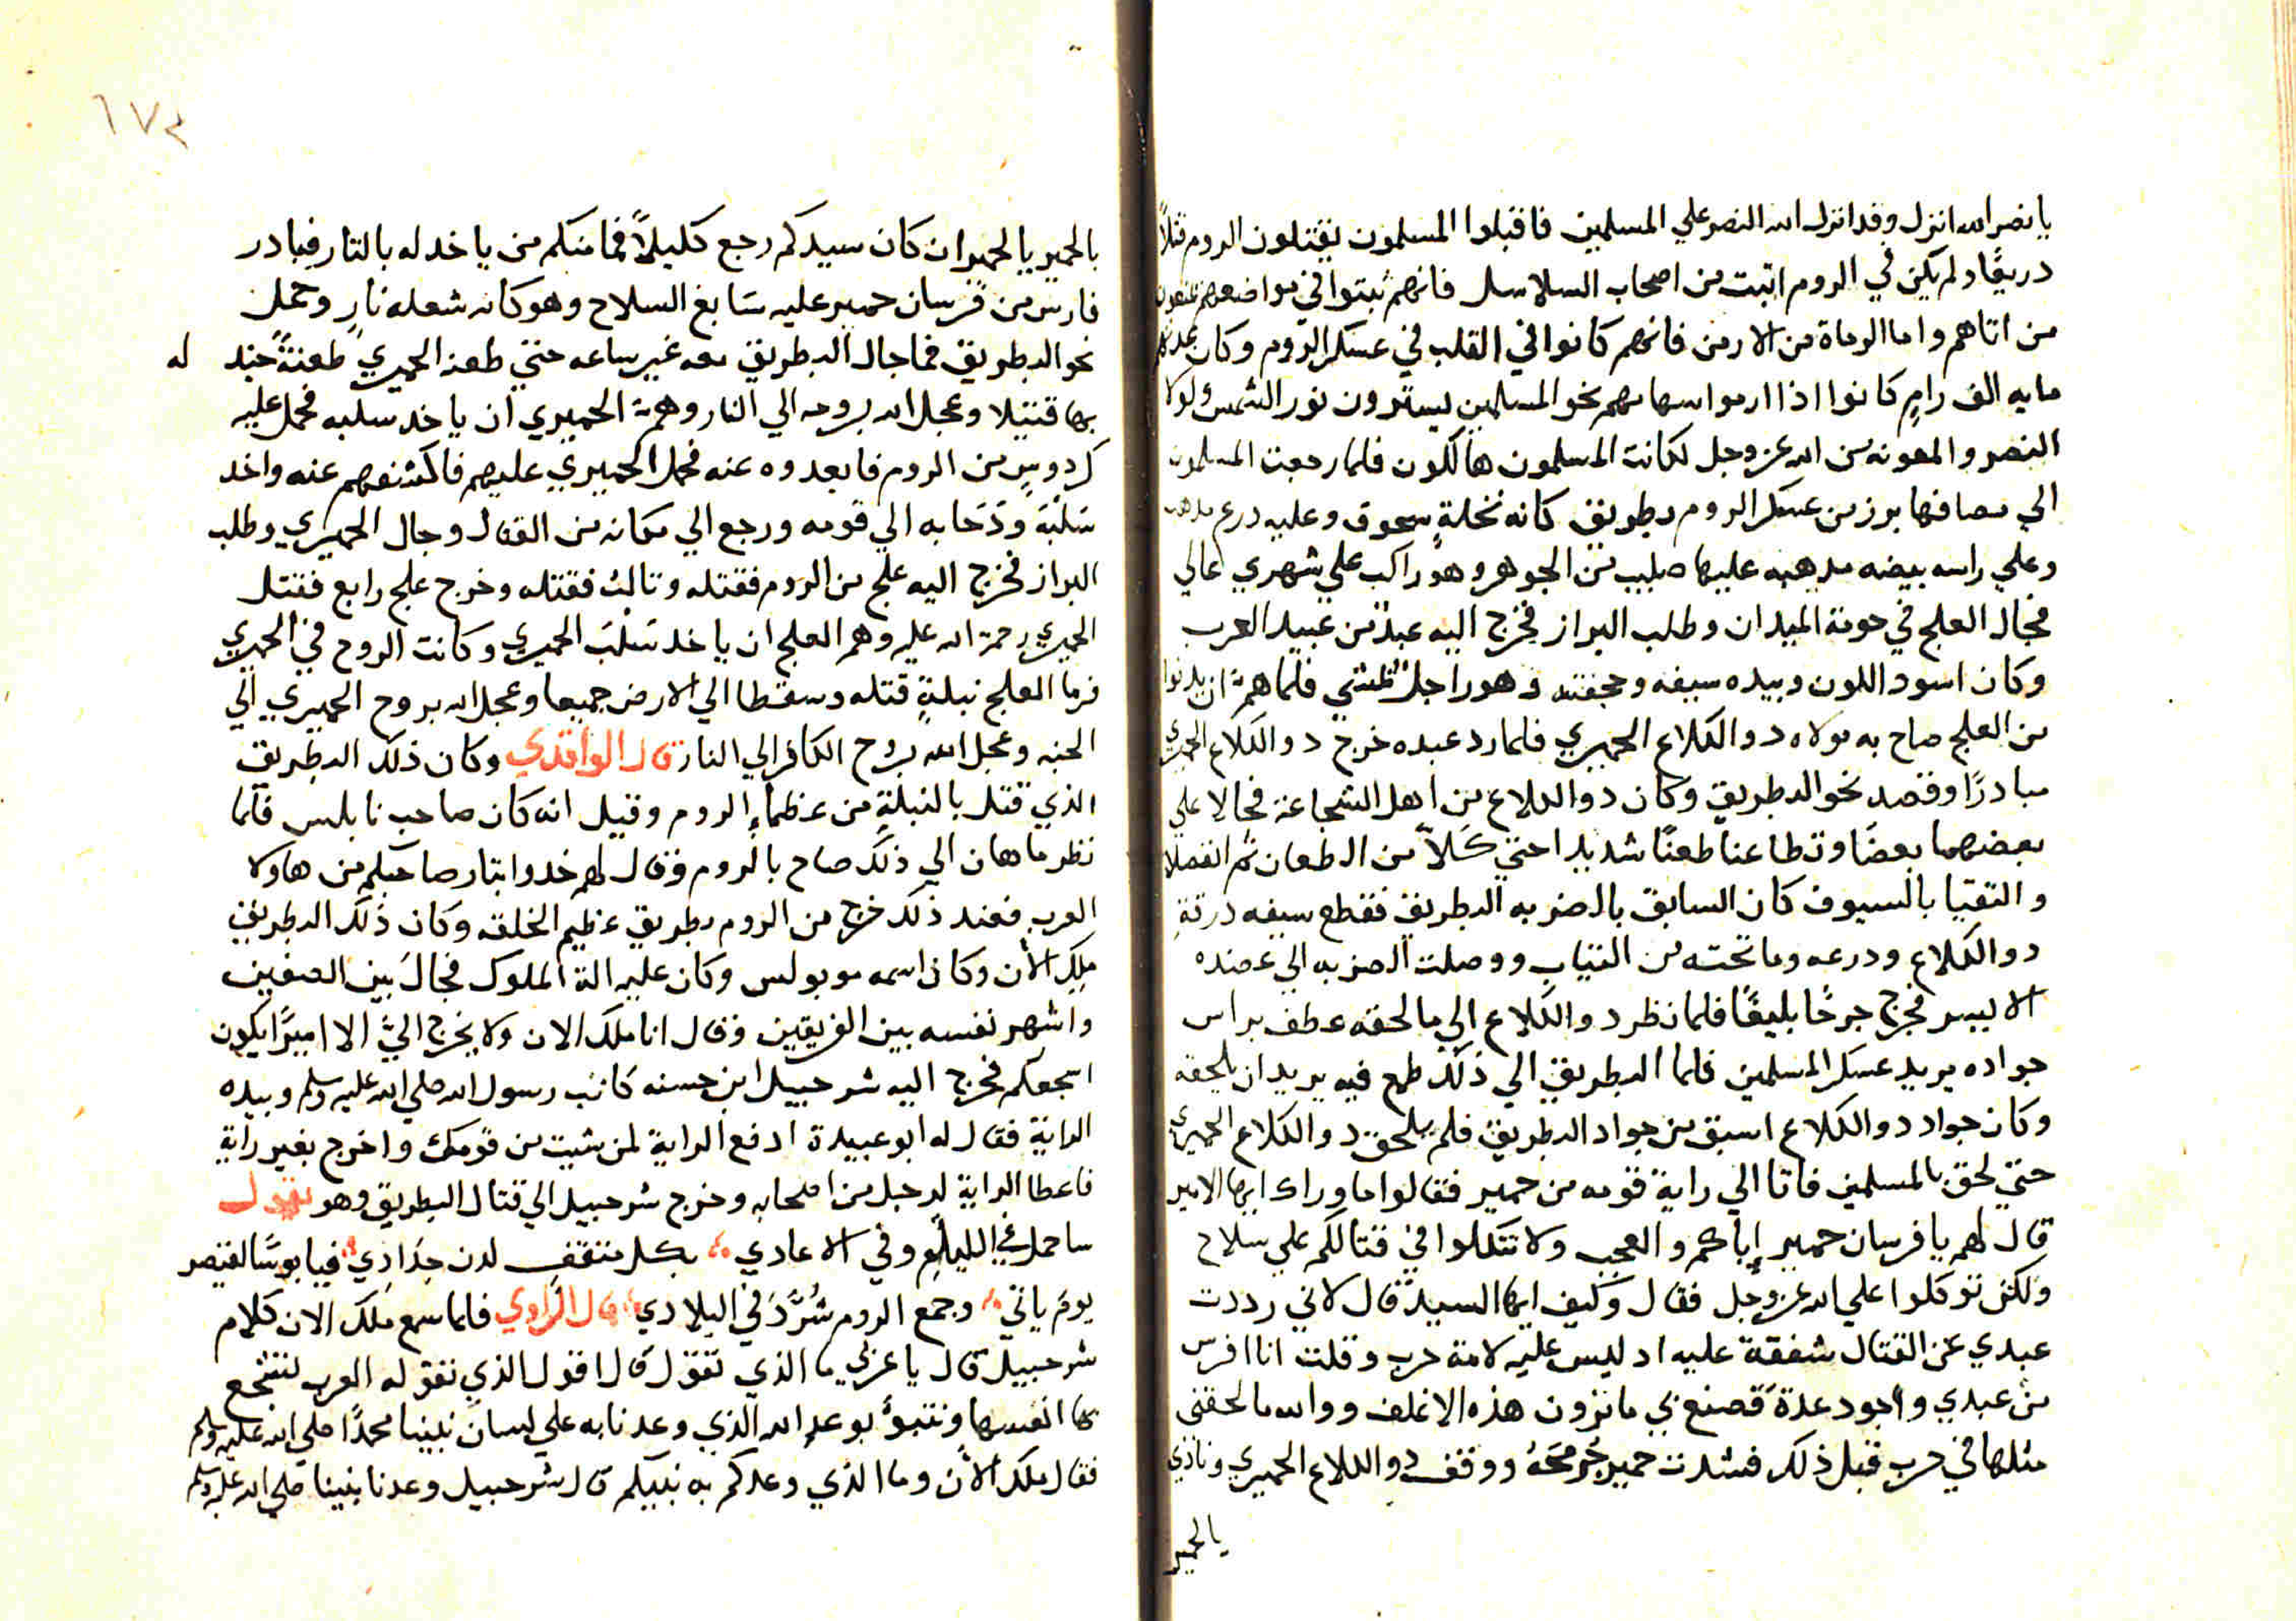 يا نصر الله انزل وقد انزل الله النصر علي المسلمين فاقبلوا المسلمون يقتلون الروم قتلاً
دريعًا ولم يكن في الروم اتبت من اصحاب السلاسل فانهم ثبتوا في مواضعهم يمنعون
من اتاهم واما الرماة من الارمن فانهم كانوا في القلب في عسكر الروم وكان عدتهم
مايه الف رامٍ كانوا اذا ارموا سهامهم نحو المسلمين يسترون نور الشمس ولولا
النصر والمعونه من الله عز وجل لكانت المسلمون هالكون فلما رجعت المسلمون
الي مصافها برز من عسكر الروم بطريق كانه نخلة سحوق وعليه درع مدهب
وعلي راسه بيضه مدهبه عليها صليب من الجوهر وهو راكب علي شهري عالي
فجال العلج في حومة الميدان وطلب البراز فخرج اليه عبد من عبيد العرب
وكان اسود اللون وبيده سيفه وحجفته وهو راجل يمشي فلما هم ان يدنوا
من العلج صاح به مولاه دوالكلاع الحميري فلما رد عبده خرج دوالكلاع الحميري
مبادرًا وقصد نحو البطريق وكان دوالكلاع من اهل الشجاعة فجالا علي
بعضهما بعضًا وتطاعنا طعنًا شديدا حتي كلاّ من الطعان ثم انفصلا
والتقيا بالسيوف كان السابق بالضربه البطريق فقطع سيفه درقة
دوالكلاع ودرعه وما تحته من الثياب ووصلت الضربه الي عضده
الايسر فجرح جرحًا بليغًا فلما نظر دوالكلاع الي ما لحقه عطف براس
جواده يريد عسكر المسلمين فلما البطريق الي ذلك طمع فيه يريد ان يلحقه
وكان جواد دوالكلاع اسبق من جواد البطريق فلم يلحق دوالكلاع الحميري
حتي لحق بالمسلمين فاتا الي راية قومه من حمير فقالوا ما وراك ايها الامير
قال لهم يا فرسان حمير إياكم والعجب ولا تتكلوا في قتالكم علي سلاح
ولكن توكلوا علي الله عز وجل فقال وكيف ايها السيد قال لاني رددت
عبدي عن القتال شفقة عليه اد ليس عليه لامة حرب وقلت انا افرس
من عبدي واجود عدة قصنع بي ما ترون هذه الاغلف ووالله ما لحقني
مثلها في حرب قبل ذلك فشدت حمير جُرحَهُ ووقف دوالكلاع الحميري ونادي
يالحمير
٦٧٢
بالحمير يالحمير ان كان سيدكم رجع كليلاً فما منكم من ياخد له بالتار فبادر
فارس من فرسان حمير عليه سَابغ السلاح وهو كانه شعله نارٍ وحمل
نحو البطريق فما جال البطريق معه غير ساعه حتي طعنه الحميري طعنةً جند له
بها قتيلا وعجل الله بروحه الي النار وهمّ الحميري ان ياخد سلبه فحمل عليه
كردوس من الروم فابعدوه عنه فحمل الحميري عليهم فاكشفهم عنه واخد
سَلْبَه ودَحَا به الي قومه ورجع الي مكانه من القتال وجال الحميري وطلب
البراز فخرج اليه علج من الروم فقتله وتالث فقتله وخرج علج رابع فقتل
الحميري رحمة الله عليه وهم العلج ان ياخد سَلْبَ الحميري وكانت الروح في الحميري
فرما العلج نبلةٍ قتله وسقطا الي الارض جميعا وعجل الله بروح الحميري الي
الجنه وعجل الله بروح الكافر الي النار قال الواقدي وكان ذلك البطريق
الذي قتل بالنبلة من عظماءِ الروم وقيل انه كان صاحب نابلس فلما
نظر ماهان الي ذلك صاح بالروم وقال لهم خدوا بتار صاحبكم من هاولا
العرب فعند ذلك خرج من الروم بطريق عظيم الخلقه وكان ذلك البطريق
ملك الأن وكان اسمه موبولس وكان عليه الة الملوك فجالَ بين الصفين
واشهر نفسه بين الفريقين وقال انا ملك الان ولا يخرج اليَّ الا اميرًا يكون
اسجعكم فخرج اليه شرحبيل ابن حسنه كاتب رسول الله صلي الله عليه وسلم وبيده
الراية فقال له ابو عبيدة ادفع الراية لمن شيت من قومك واخرج بغير راية
فاعطا الراية لرجل من اصحابه وخرج شرحبيل الي قتال البطريق وهو يقول
ساحمل في الليام وفي الاعادي بكل مثقف لدن حدادي فيا بوسًا لقيصر
يومَ ياتي وجمع الروم شُرَّدَ في البلادي قال الراوي فلما سمع ملك الان كلام
شرحبيل قال يا عربي ما الذي تقول قال اقول الذي تقوله العرب لتشجع
بها انفسها ونثبوُ بوعدِ الله الذي وعدنا به علي لسان نبينا محمدًا صلي الله عليه وسلم
فقال ملك الأن وما الذي وعدكم به نبيكم قال شرحبيل وعدنا نبينا صلي الله عليه وسلم